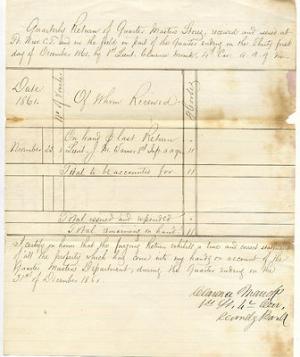 Quarterly Return of Quarter Masters Stores, received and issued at
and in the field in part of the Quarter ending on the Thirty first
day of December 1861, by 1st Lieut. Clarence Mauck, 4th Cav. A. A. Q. M.
Date
1861.
No. of Voucher
Of Whom Received.
On hand @ last Return
November 25 Lieut. J. M. Warner 8th Inf. a a q m 11
Total to be accounted for 11
Total issued and expended
Total remaining on hand 11
I certify on honor that the foregoing Return exhibits a true and correct statement
of all the property which has come into my hands on account of the
Quarter Masters Department, during the Quarter ending on the
31st of December 1861.
Clarence Mauck
1st Lt. 4th Cav.